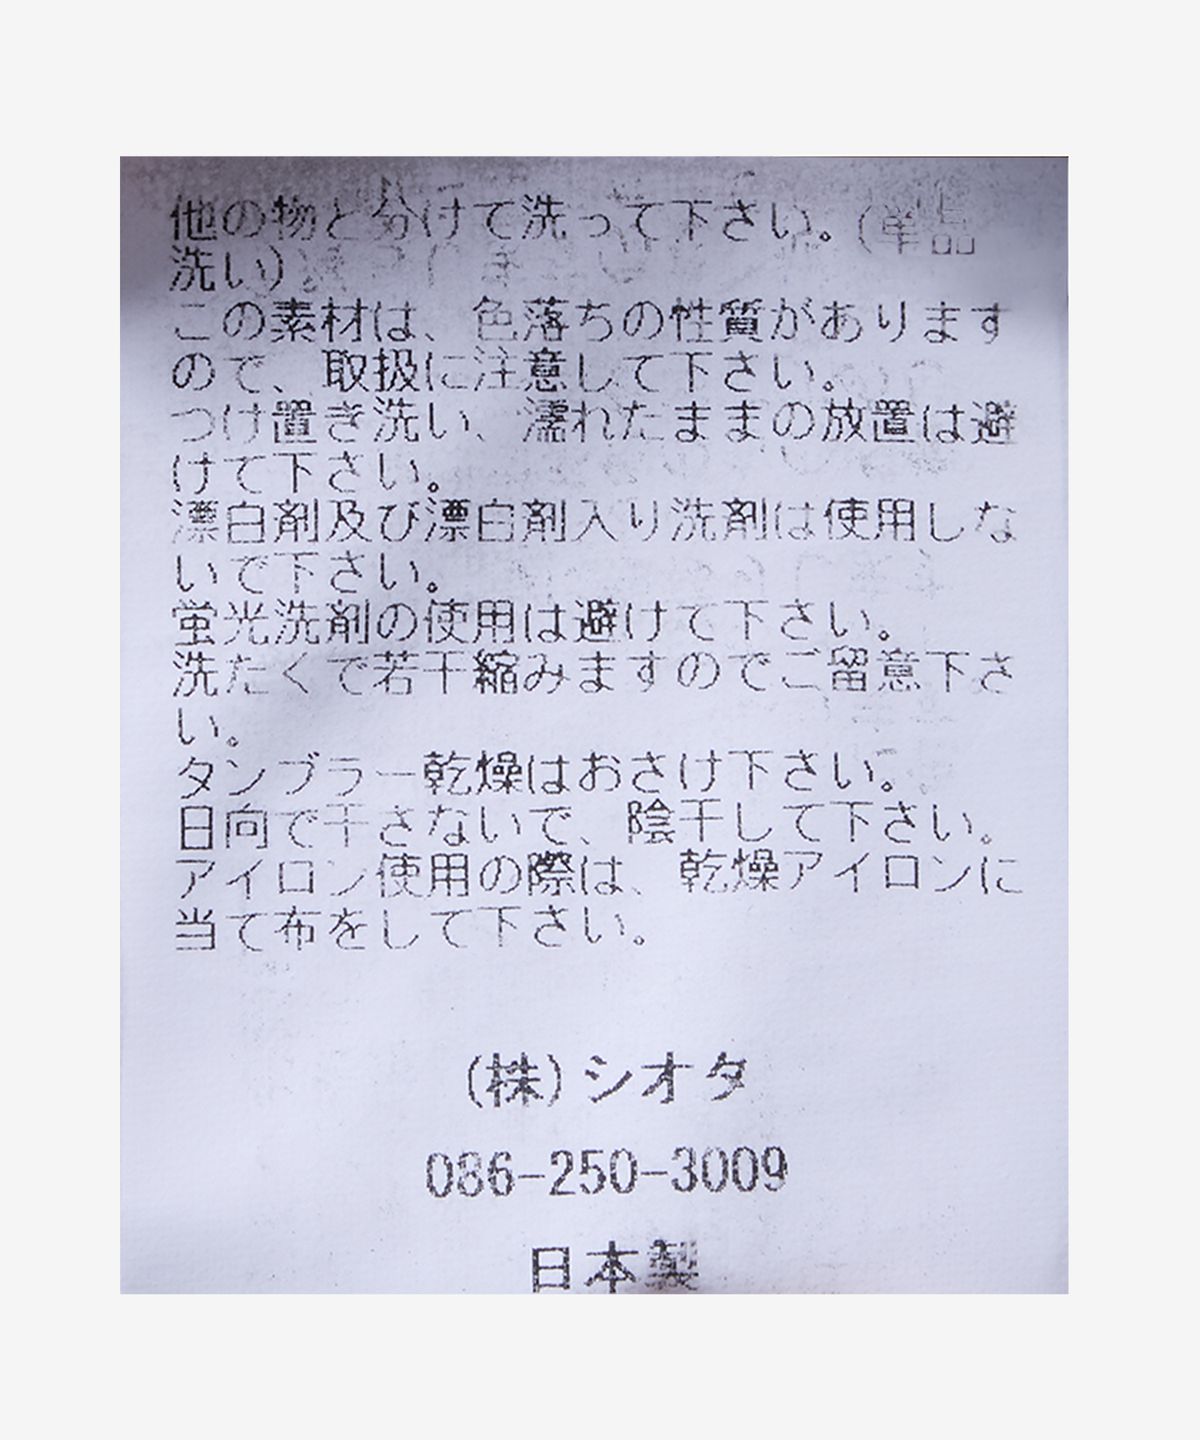 他の物と分けて洗って下さい。(単品
洗い)
この素材は、色落ちの性質があります
ので、取扱に注意して下さい。
つけ置き洗い、濡れたままの放置は避
けて下さい。
漂白剤及び漂白剤入り洗剤は使用しな
いで下さい。
蛍光洗剤の使用は避けて下さい。
洗たくで若干縮みますのでご留意下さ
い。
タンブラー乾燥はおさけ下さい。
日向で干さないで、陰干して下さい。
アイロン使用の際は、乾燥アイロンに
当て布をして下さい。
(株)シオタ
086-250-3009
日本製